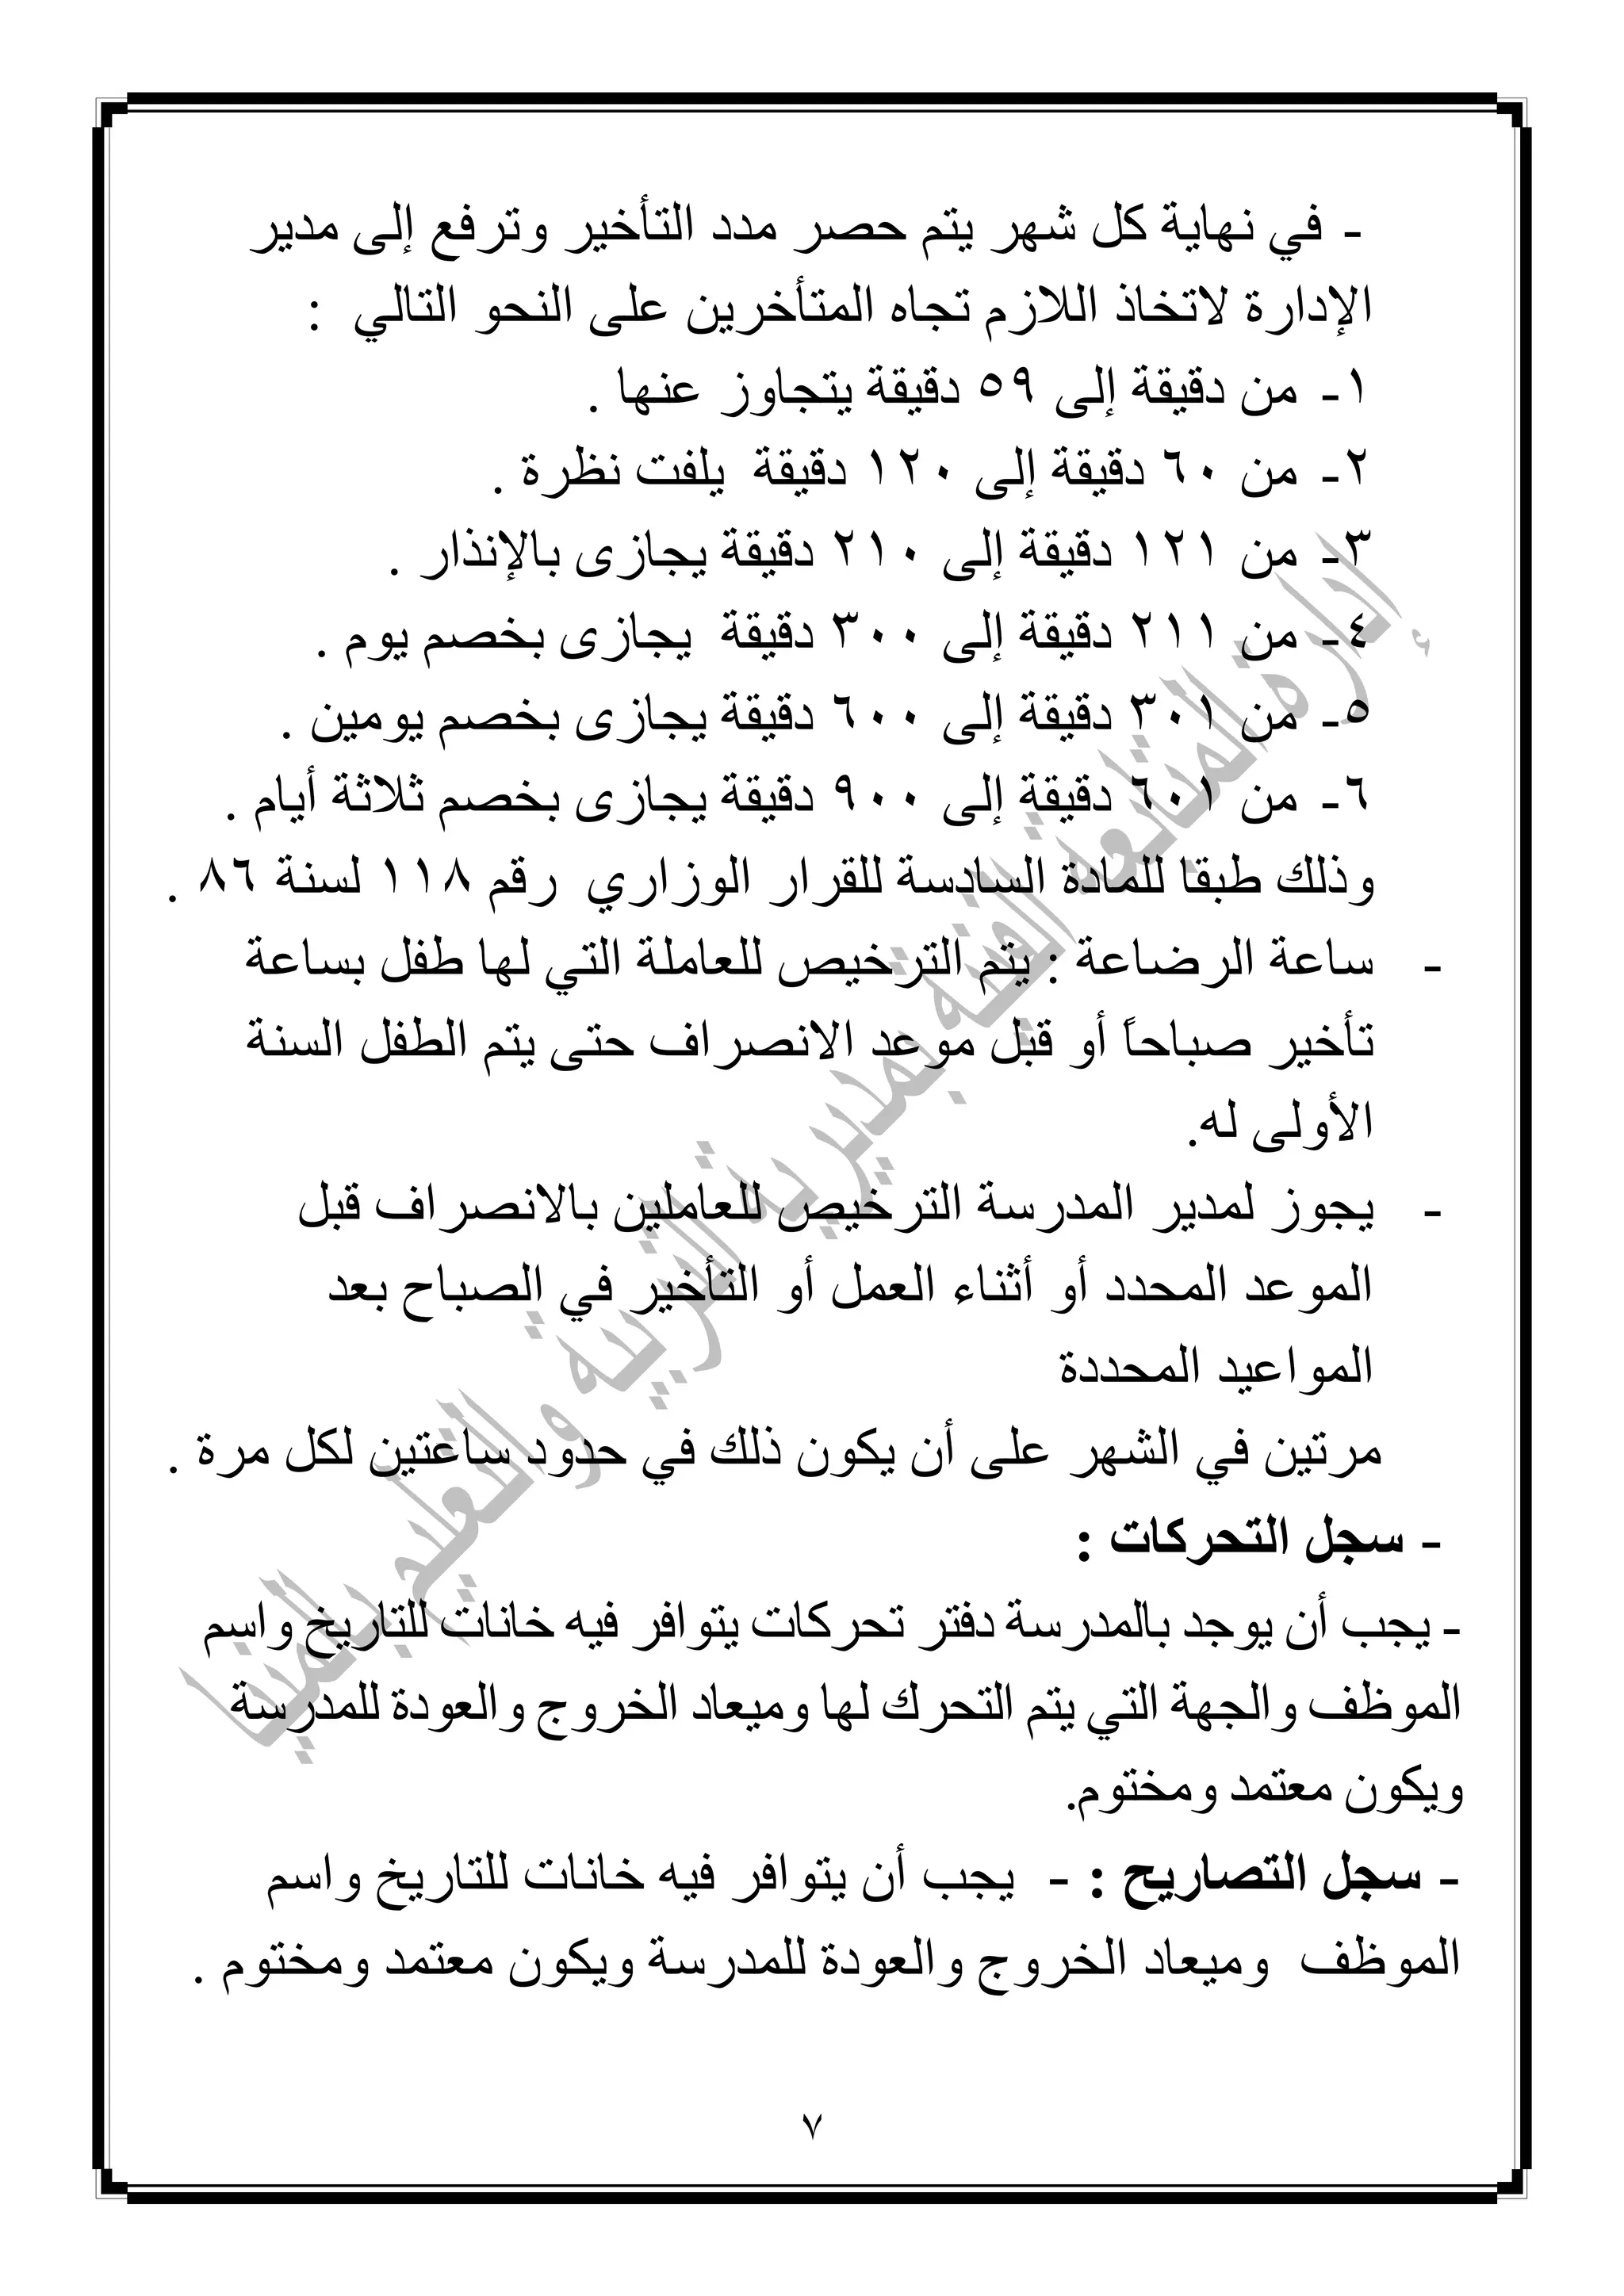 - في نهاية كل شهر يتم حصر مدد التأخير وترفع إلى مدير
الإدارة لاتخاذ اللازم تجاه المتأخرين على النحو التالي :
١- من دقيقة إلى ٥٩ دقيقة يتجاوز عنها .
٢- من ٦٠ دقيقة إلى ١٢٠ دقيقة يلفت نظرة .
٣- من ١٢١ دقيقة إلى ٢١٠ دقيقة يجازى بالإنذار .
٤- من ٢١١ دقيقة إلى ٣٠٠ دقيقة يجازى بخصم يوم .
٥- من ٣٠١ دقيقة إلى ٦٠٠ دقيقة يجازى بخصم يومين .
٦- من ٦٠١ دقيقة إلى ٩٠٠ دقيقة يجازى بخصم ثلاثة أيام .
وذلك طبقا للمادة السادسة للقرار الوزاري رقم ١١٨ لسنة ٨٦ .
- ساعة الرضاعة : يتم الترخيص للعاملة التي لها طفل بساعة
تأخير صباحاً أو قبل موعد الانصراف حتى يتم الطفل السنة
الأولى له.
- يجوز لمدير المدرسة الترخيص للعاملين بالانصراف قبل
الموعد المحدد أو أثناء العمل أو التأخير في الصباح بعد
المواعيد المحددة
مرتين في الشهر على أن يكون ذلك في حدود ساعتين لكل مرة .
- سجل التحركات :
- يجب أن يوجد بالمدرسة دفتر تحركات يتوافر فيه خانات للتاريخ واسم
الموظف والجهة التي يتم التحرك لها وميعاد الخروج والعودة للمدرسة
ويكون معتمد ومختوم.
- سجل التصاريح : - يجب أن يتوافر فيه خانات للتاريخ واسم
الموظف وميعاد الخروج والعودة للمدرسة ويكون معتمد ومختوم .
٧
إدارة المتابعة الفنية بمديرية التربية والتعليم بالمنيا